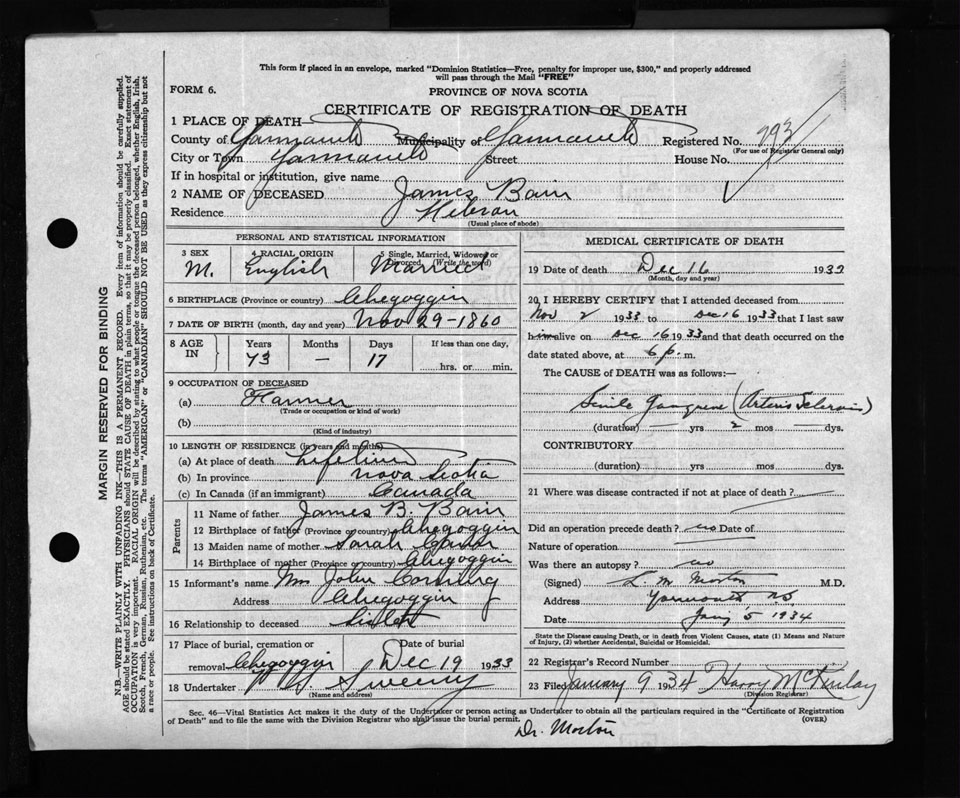 This form if placed in an envelope, marked "Dominion Statistics—Free, penalty for improper use, $300," and properly addressed
will pass through the Mail "FREE"
FORM 6.
PROVINCE OF NOVA SCOTIA
CERTIFICATE OF REGISTRATION OF DEATH
1 PLACE OF DEATH
County of Yarmouth Municipality of Yarmouth Registered No. 793
(For use of Registrar General only)
City or Town Yarmouth Street House No.
If in hospital or institution, give name
2 NAME OF DECEASED James Bain
Residence Hebron
(Usual place of abode)
PERSONAL AND STATISTICAL INFORMATION
3 SEX 4 RACIAL ORIGIN 5 Single, Married, Widowed or Divorced, (Write the word)
M. English Married
6 BIRTHPLACE (Province or country) Chegoggin
7 DATE OF BIRTH (month, day and year) Nov 29-1860
8 AGE IN Years Months Days If less than one day,
73 — 17 hrs. or min.
9 OCCUPATION OF DECEASED
(a) Farmer
(Trade or occupation or kind of work)
(b)
(Kind of industry)
10 LENGTH OF RESIDENCE (in years and months)
(a) At place of death Lifetime
(b) In province Nova Scotia
(c) In Canada (if an immigrant) Canada
Parents
11 Name of father James B. Bain
12 Birthplace of father (Province or country) Chegoggin
13 Maiden name of mother Sarah
14 Birthplace of mother (Province or country) Chegoggin
15 Informant's name Mrs John Corning
Address Chegoggin
16 Relationship to deceased Sister
17 Place of burial, cremation or removal Chegoggin Date of burial Dec 19 1933
18 Undertaker Sweeny
(Name and address)
MEDICAL CERTIFICATE OF DEATH
19 Date of death Dec 16 1933
(Month, day and year)
20 I HEREBY CERTIFY that I attended deceased from
Nov 2 1933 to Dec 16 1933 that I last saw
him alive on Dec 16 1933 and that death occurred on the
date stated above, at 6 p. m.
The CAUSE OF DEATH was as follows:—
Senile Gangrene (Arterio Sclerosis)
(duration) — yrs 2 mos — dys.
CONTRIBUTORY
(duration) yrs mos dys.
21 Where was disease contracted if not at place of death?
Did an operation precede death? no Date of
Nature of operation
Was there an autopsy? no
(Signed) L. M. Morton M.D.
Address Yarmouth N.S
Date Jan'y 5 1934
State the Disease causing Death, or in death from Violent Causes, state (1) Means and Nature
of Injury, (2) whether Accidental, Suicidal or Homicidal.
22 Registrar's Record Number
23 Filed January 9 1934 Harry McKinlay
(Division Registrar)
Sec. 46—Vital Statistics Act makes it the duty of the Undertaker or person acting as Undertaker to obtain all the particulars required in the "Certificate of Registration
of Death" and to file the same with the Division Registrar who shall issue the burial permit. (OVER)
Dr. Morton
MARGIN RESERVED FOR BINDING
N.B.—WRITE PLAINLY WITH UNFADING INK—THIS IS A PERMANENT RECORD. Every item of information should be carefully supplied.
AGE should be stated EXACTLY. PHYSICIANS should STATE CAUSE OF DEATH in plain terms, so that it may be properly classified. Exact statement of
OCCUPATION is very important. RACIAL ORIGIN will be described by stating to what people or tongue the deceased person belonged, whether English, Irish,
Scotch, French, German, Russian, Ruthenian, etc. The terms "AMERICAN" or "CANADIAN" SHOULD NOT BE USED as they express citizenship but not
a race or people. See instructions on back of Certificate.